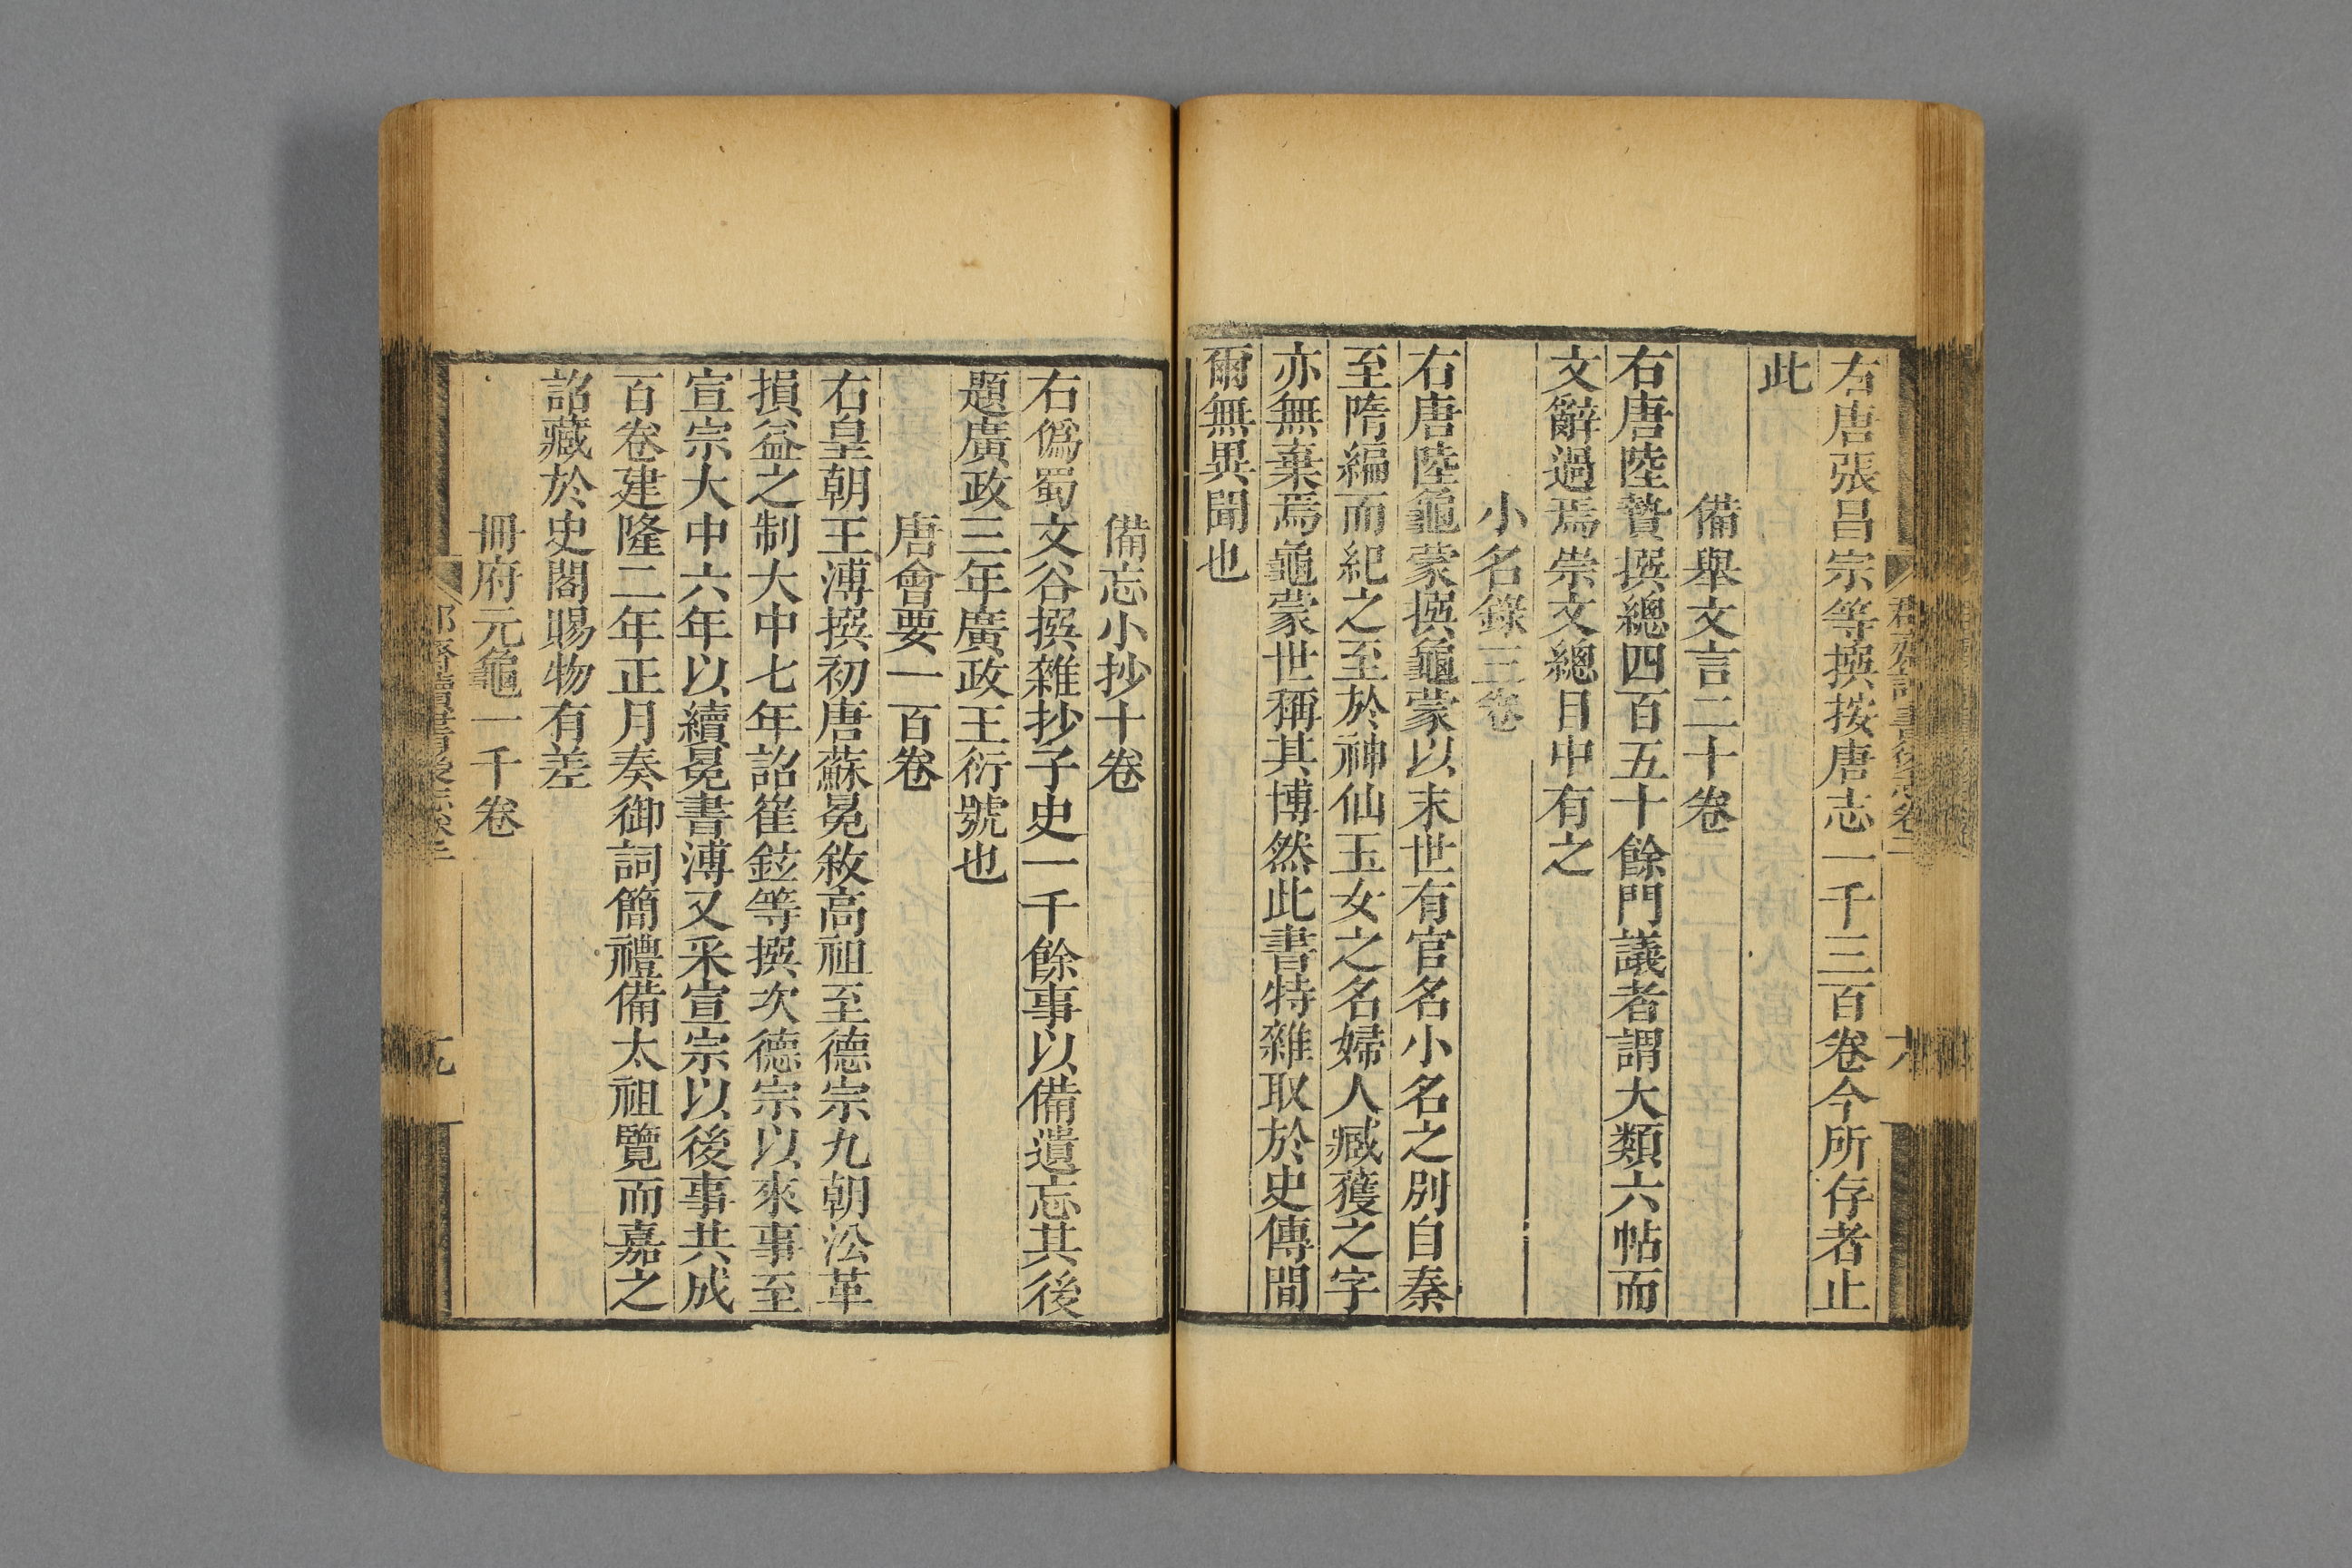 右唐張昌宗等撰按唐志一千三百卷今所存者止
此
備舉文言二十卷
右唐陸贄撰總四百五十餘門議者謂大類六帖而
文辭過焉崇文總目中有之
小名錄三卷
右唐陸龜蒙撰龜蒙以末世有官名小名之別自秦
至隋編而紀之至於神仙玉女之名婦人臧獲之字
亦無棄焉龜蒙世稱其博然此書特雜取於史傳間
爾無異聞也
備忘小抄十卷
右僞蜀文谷撰雜抄子史一千餘事以備遺忘其後
題廣政三年廣政王衍號也
唐會要一百卷
右皇朝王溥撰初唐蘇冕敘高祖至德宗九朝沿革
損益之制大中七年詔崔鉉等撰次德宗以來事至
宣宗大中六年以續冕書溥又采宣宗以後事共成
百卷建隆二年正月奏御詞簡禮備太祖覽而嘉之
詔藏於史閣賜物有差
冊府元龜一千卷